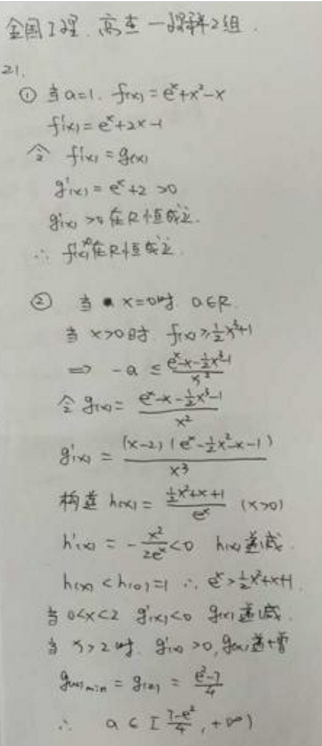 全国I理
21.
① 当a=1. f(x)=e^x+x²-x
f'(x)=e^x+2x-1
令 f'(x)=g(x)
g'(x)=e^x+2>0
g'(x)>0在R恒成立.
∴ f'(x)在R恒成立
② 当 x=0时, a∈R.
当 x>0时 f(x)≥½x³+1
⟹ -a ≤ (e^x-x-½x³-1)/x²
令 g(x)= (e^x-x-½x³-1)/x²
g'(x)= (x-2)(e^x-½x²-x-1)/x³
构造 h(x)= (½x²+x+1)/e^x (x>0)
h'(x)= -x²/(2e^x)<0 h(x)递减.
h(x)<h(0)=1 ∴ e^x>½x²+x+1
当 0<x<2 g'(x)<0 g(x)递减.
当 x>2时. g'(x)>0, g(x)递增
g(x)min = g(2) = (e²-7)/4
∴ a∈[(7-e²)/4, +∞)